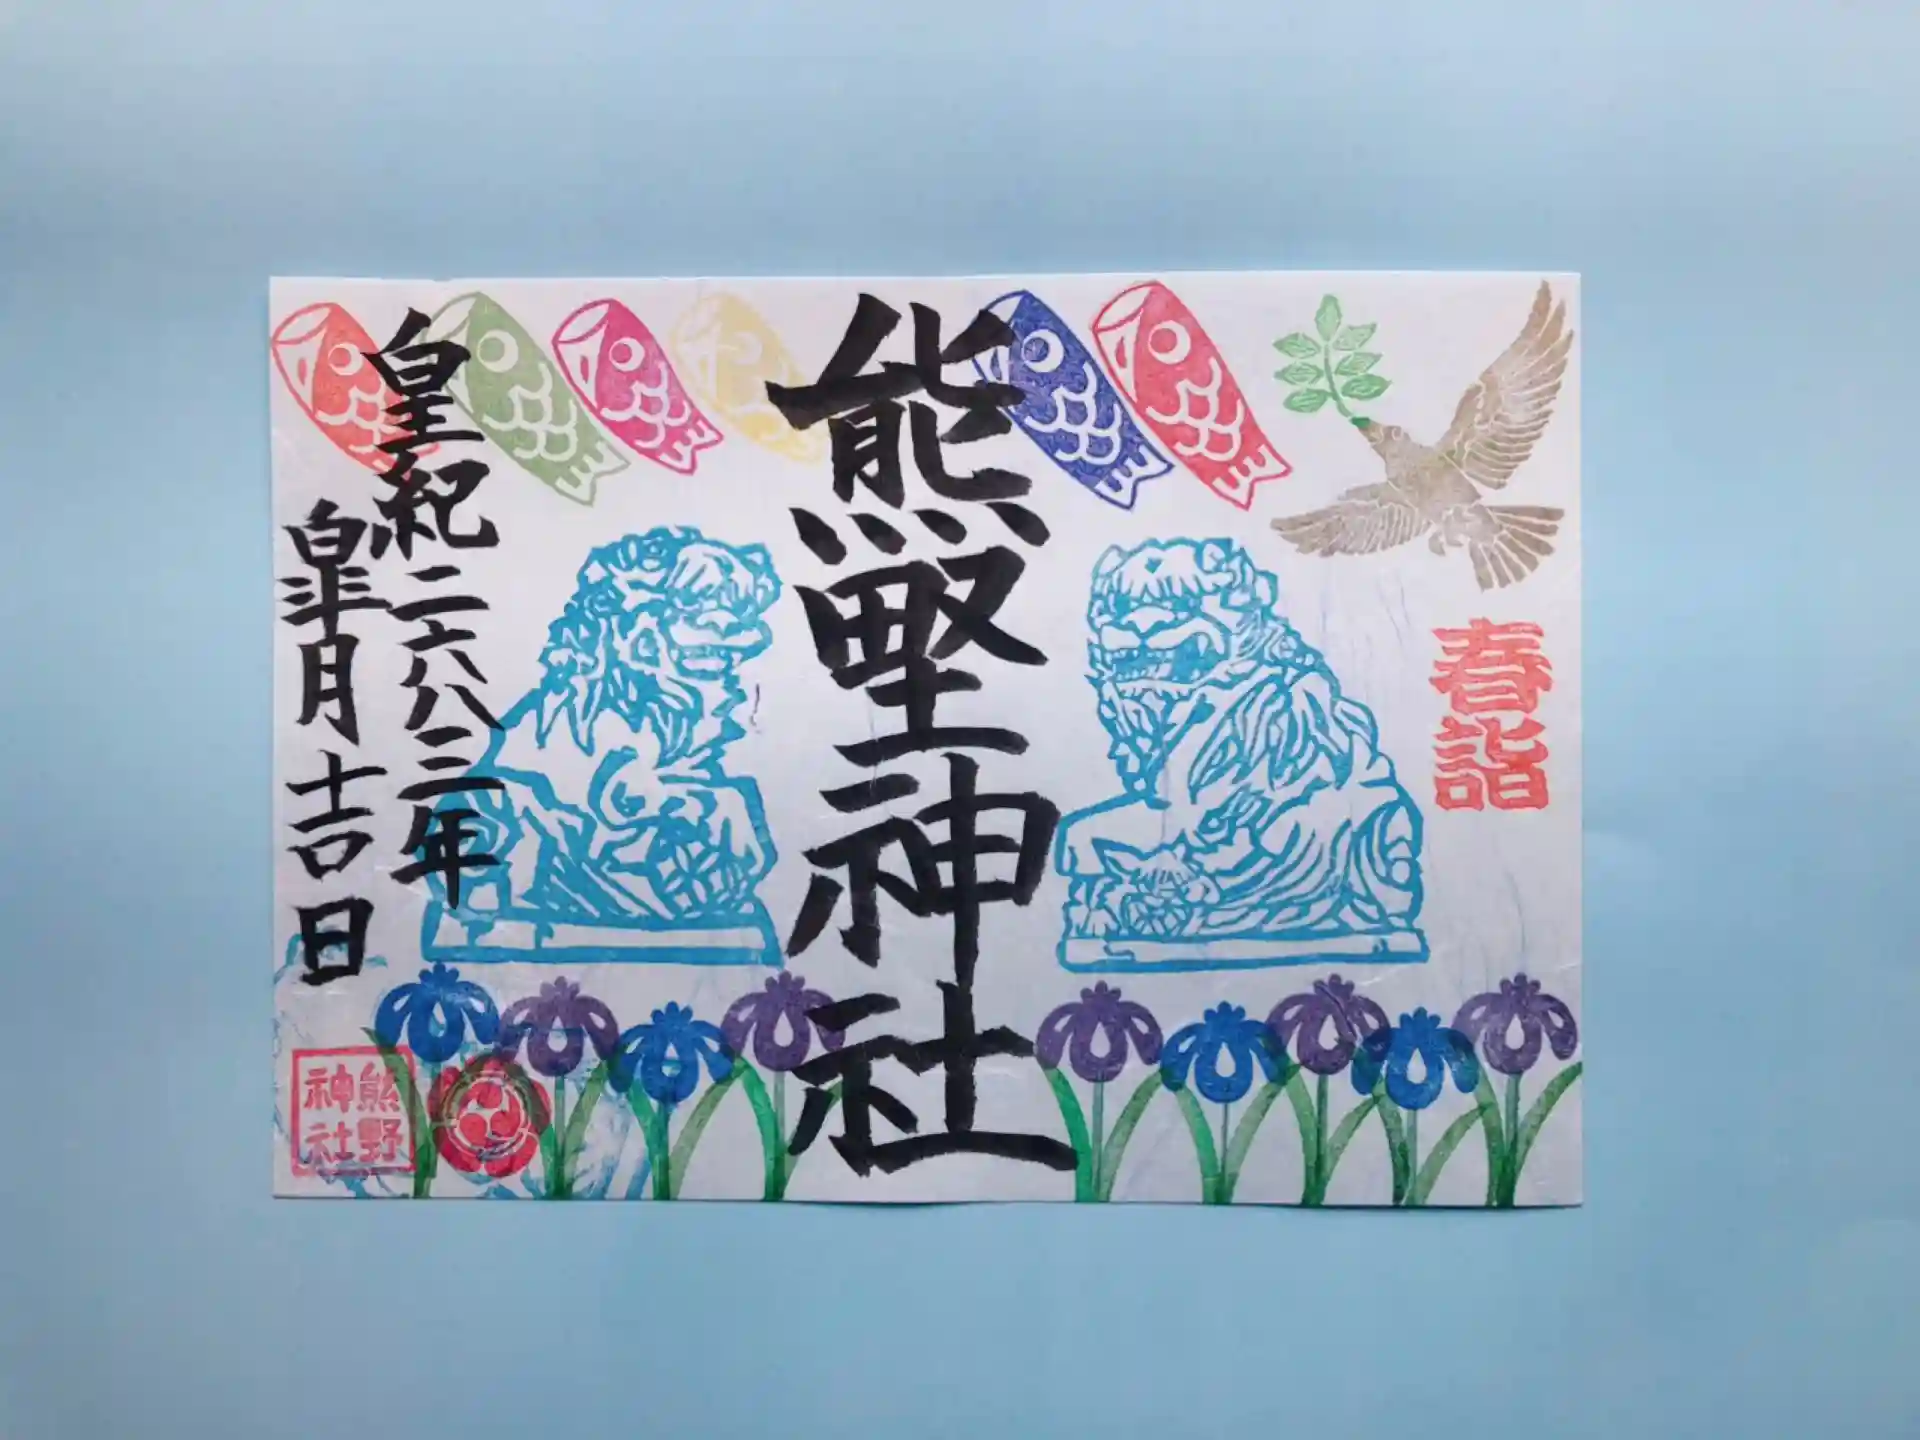 春詣
熊野神社
皇紀二六八二年
皐月吉日
熊野
神社